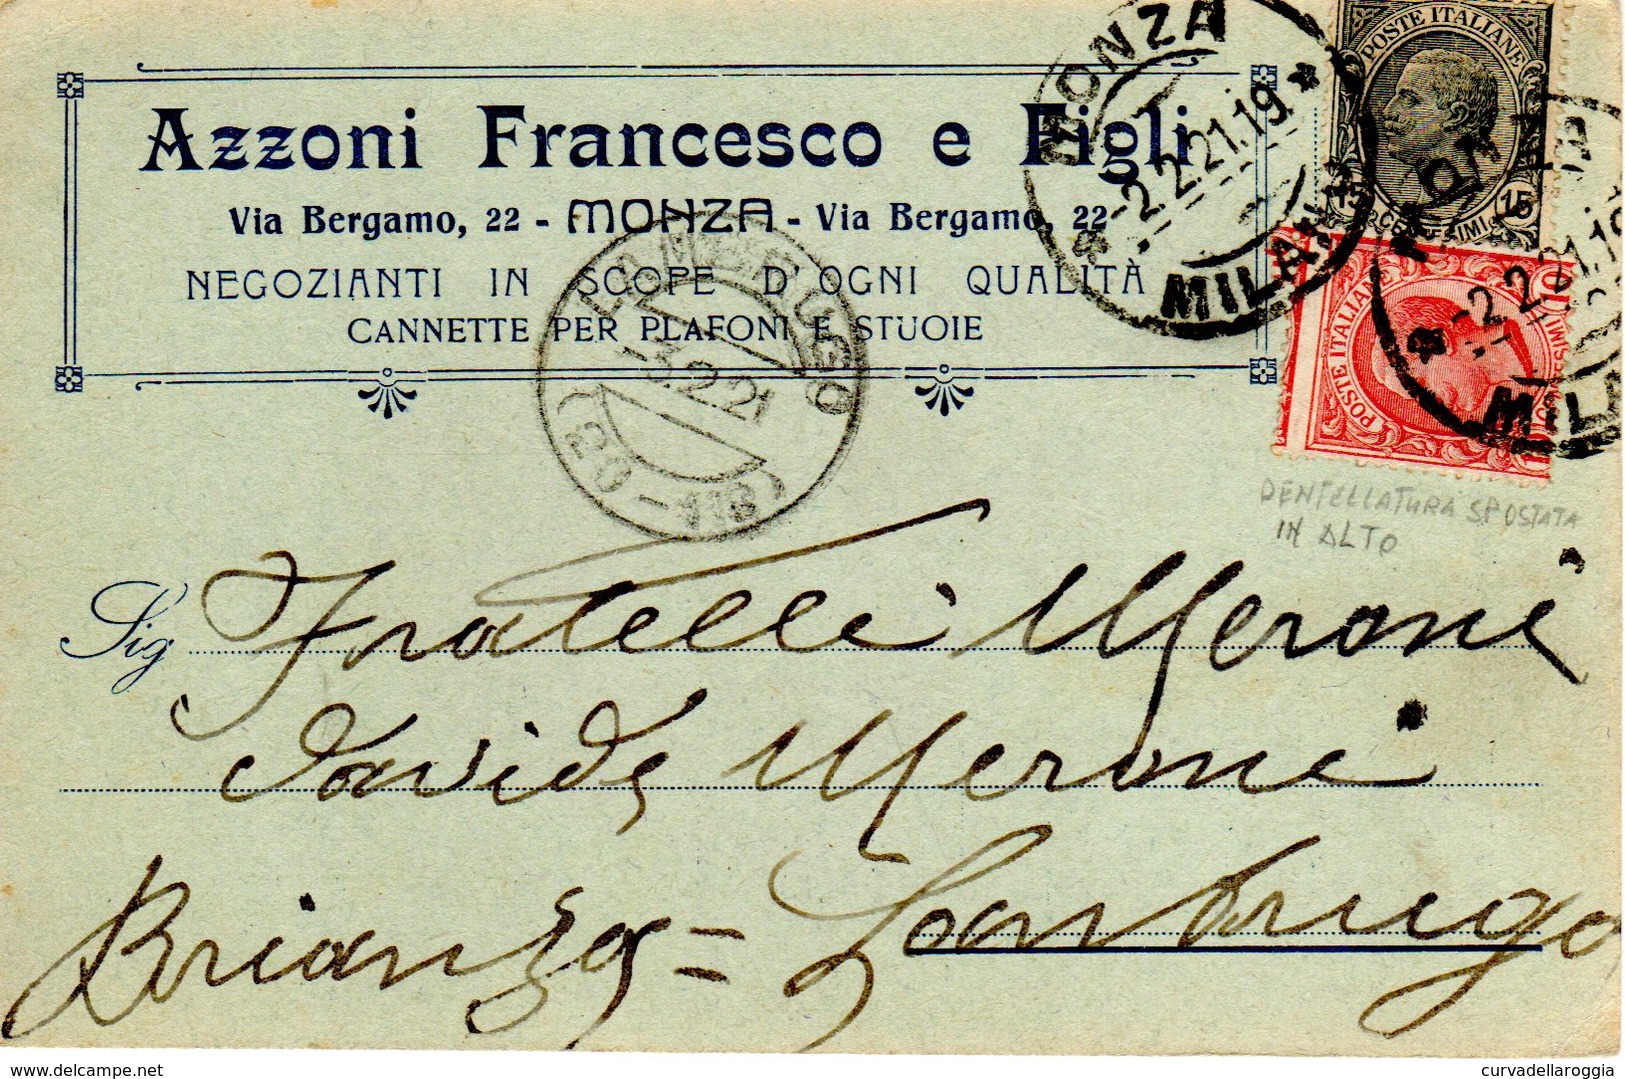 Azzoni Francesco e Figli
Via Bergamo, 22 - MONZA - Via Bergamo, 22
NEGOZIANTI IN SCOPE D'OGNI QUALITÀ
CANNETTE PER PLAFONI E STUOIE
MONZA
-2.2.21.19
MILANO
POSTE ITALIANE
15 CENTESIMI 15
POSTE ITALIANE
MONZA
-2.2.21.19
MILA
LAMBRUGO
-3.2.21
(20-118)
DENTELLATURA SPOSTATA
IN ALTO
Sig Fratelli Meroni
Davide Meroni
Brianza = Lambrugo
delcampe.net
curvadellaroggia